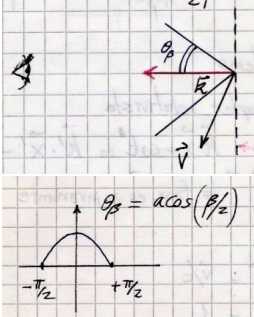 θβ
k⃗
V⃗
θβ = acos(β/2)
-π/2 +π/2